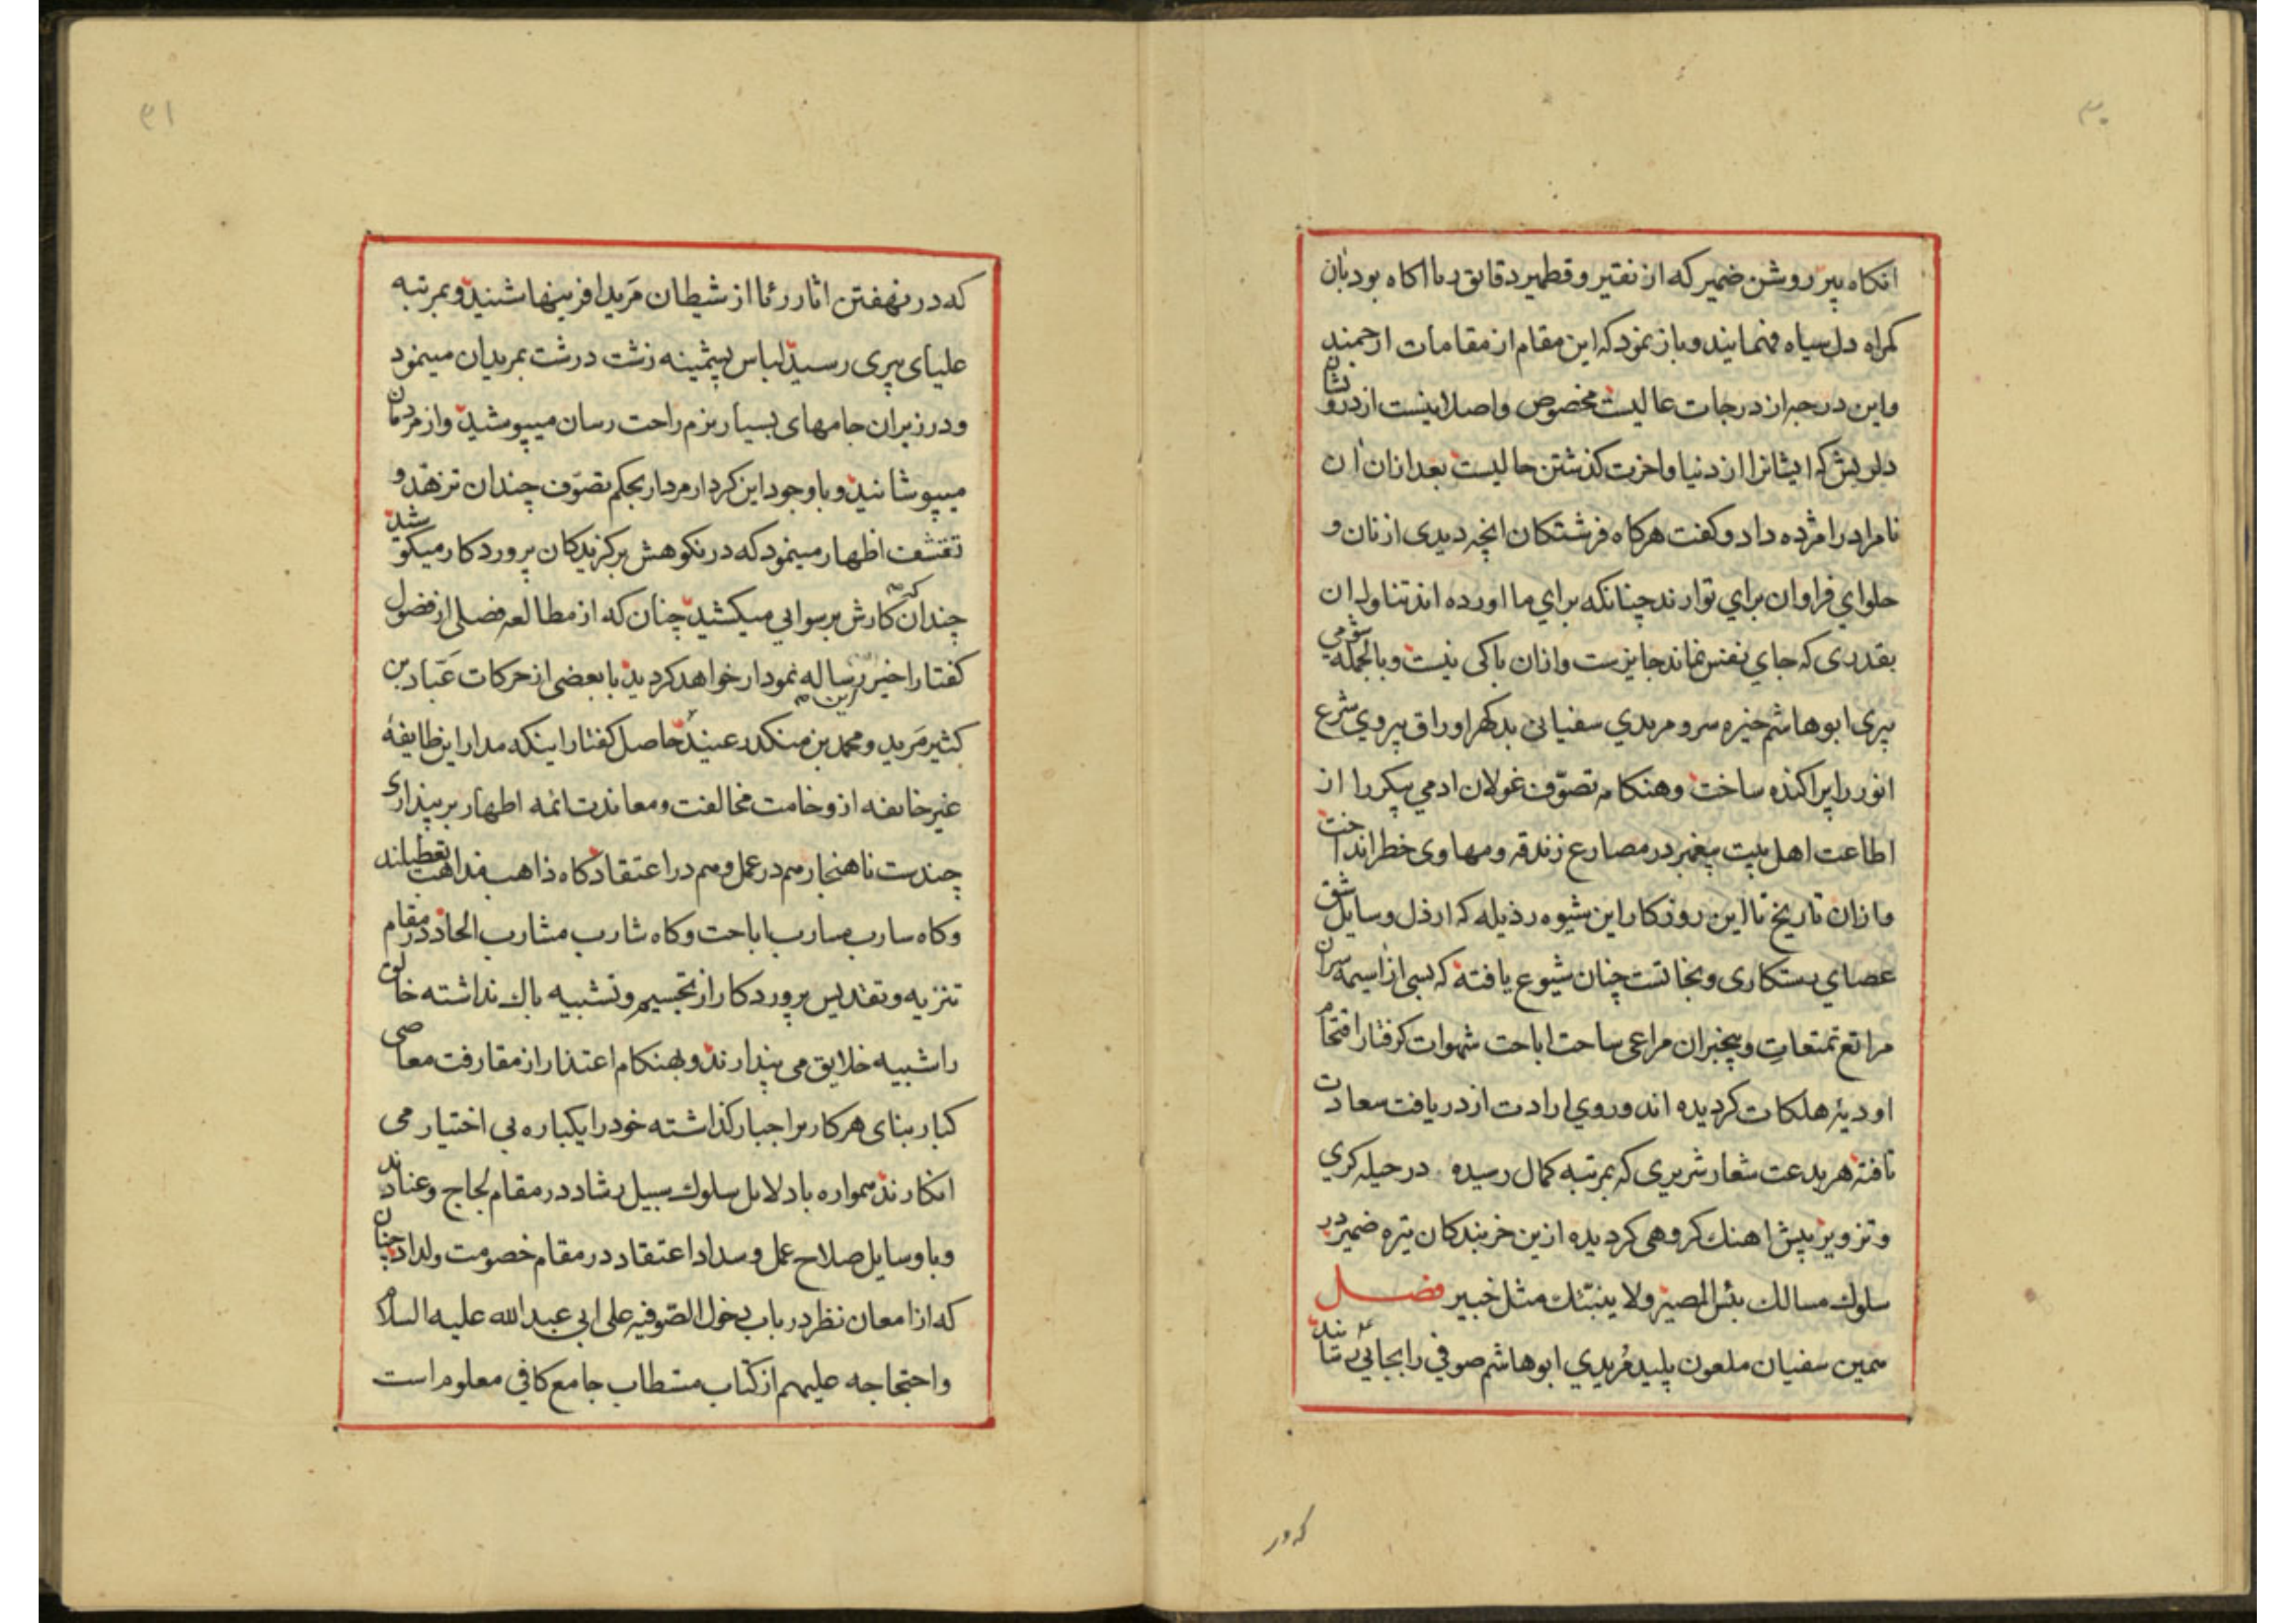 ۳۰
انکاه پیر روشن ضمیر که از نقیر و قطمیر دقایق ما اکاه بود بان
کمراه دل سیاه فهمانید و باز نمود که این مقام از مقامات ارجمند
واین درجه از درجات عالیست مخصوص واصلانیست از درونشان
دلریش که ایشانرا از دنیا واخرت کذشتن حالیست بعد ازان ان
نامراد را مژده داد و کفت هرکاه فرشتکان انچه دیدی از نان و
حلوای فراوان برای تو ارند چنانکه برای ما اورده اند تناول ان
بقدری که جای نفس نماند جایزست وازان باکی نیست وبالجمله شومی
پیری ابوهاشم خیره سر و مریدی سفیان بدکهر اوراق پیروی شرع
انور را پراکنده ساخت وهنکامه تصوّف غولان ادمی پیکر را از
اطاعت اهل بیت پیغمبر در مصارع زندقه ومهاوی خطر انداخت
وازان تاریخ تا این روزکار این شیوه رذیله که ارذل وسایل شق
عصای رستکاری ونجاتست چنان شیوع یافته که بسی از اسیمه سران
مراتع تمتعات وبیخبران مراعی ساحت اباحت شهوات کرفتار اقتحام
اودیهٔ هلکات کردیده اند وروی ارادت از دریافت سعادت
تافته هر بدعت شعار شریری که بمرتبه کمال رسیده در حیله کری
وتزویر پیش اهنک کروهی کردیده ازین خربندکان تیره ضمیر در
سلوك مسالك بئس المصیر ولا ینبّئك مثل خبیر فصل
همین سفیان ملعون پلید مُریدی ابوهاشم صوفی را بجائی رسانید
که در
۳۱
که در نهفتن اثار رئا از شیطان مَرید افرینها شنید وبمرتبه
علیای پیری رسید لباس پشمینه زشت درشت بمریدان مینمود
ودر زیران جامهای بسیار نرم راحت رسان میپوشید واز مردمان
میپوشانید وبا وجود این کردار مردار بحکم تصوّف چندان تزهّد و
تقشّف اظهار مینمود که در نکوهش برکزیدکان پروردکار میکوشید
چندان که کارش برسوایی میکشید چنان که از مطالعه فصلی از فصول
کفتار اخیر این رساله نمودار خواهد کردید با بعضی از حرکات عَبّاد بن
کثیر مَرید ومحمد بن منکدر عنید حاصل کفتار اینکه مدار این طایفهٔ
غیر خایفه از وخامت مخالفت ومعاندت ائمه اطهار بر پنداری
چندست ناهنجار هم در عمل وهم در اعتقاد کاه ذاهب مذاهب تعطیلند
وکاه سارب مسارب اباحت وکاه شارب مشارب الحاد در مقام
تنزیه وتقدیس پروردکار از تجسیم وتشبیه باك نداشته خالق
را شبیه خلایق می پندارند وبهنکام اعتذار از مقارفت معاصی
کبار بنای هر کار بر اجبار کذاشته خود را یکباره بی اختیار می
انکارند همواره با دلایل سلوك سبیل رشاد در مقام لجاج وعنادند
وبا وسایل صلاح عمل وسداد اعتقاد در مقام خصومت ولداد چنان
که از امعان نظر در باب دخول الصّوفیه علی ابی عبد الله علیه السلام
واحتجاجه علیهم از کتاب مستطاب جامع کافی معلوم است